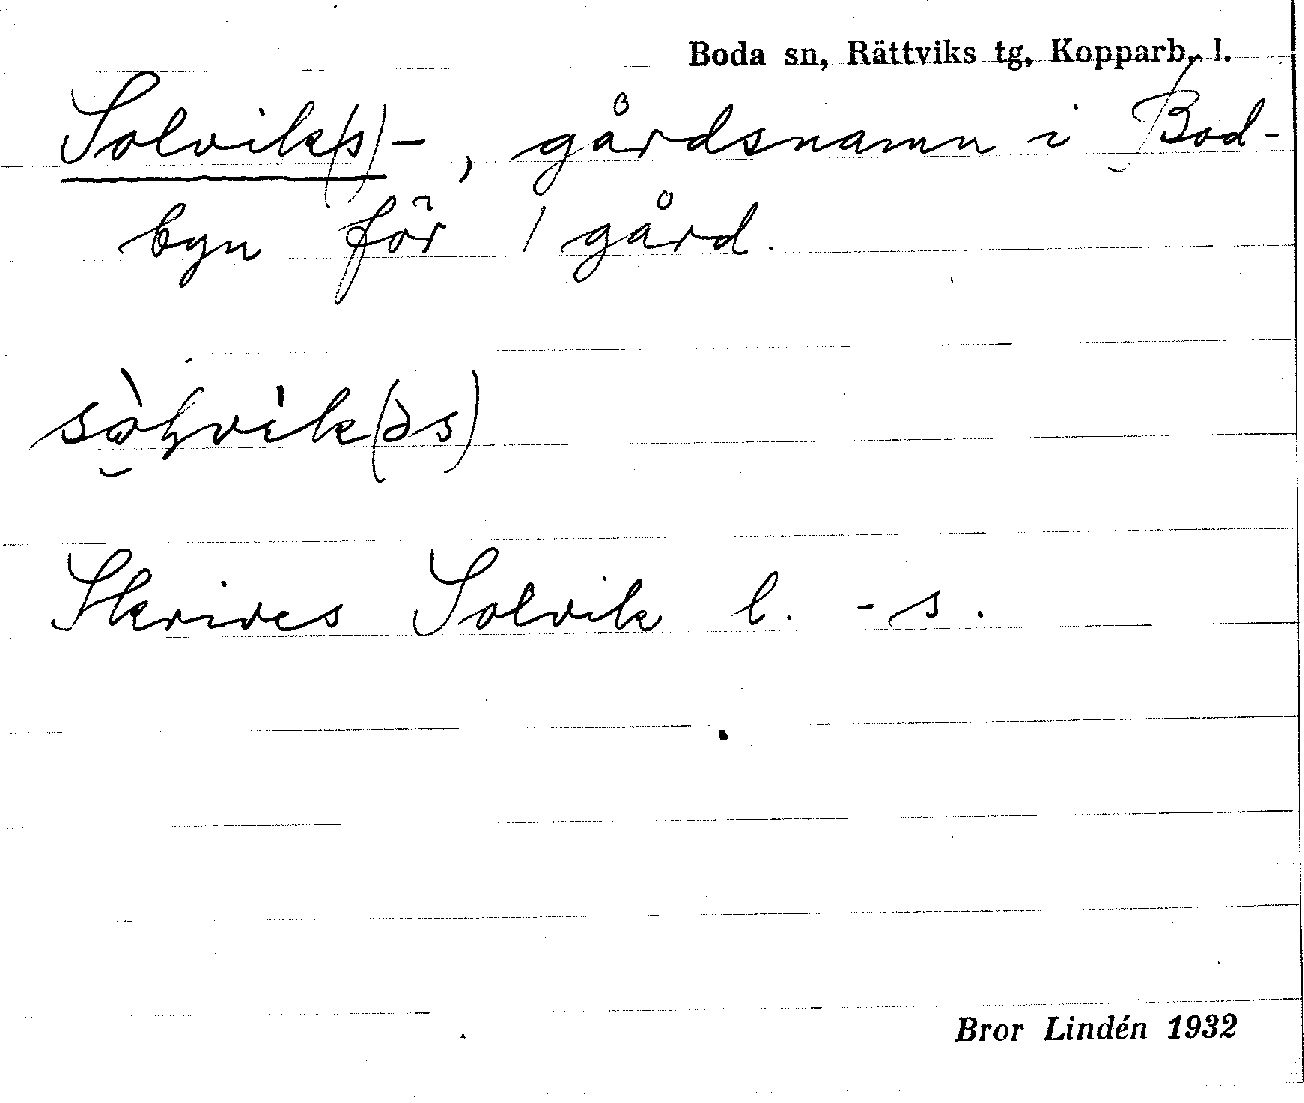 Boda sn, Rättviks tg, Kopparb. l.
Solvik(s)-, gårdsnamn i Bod-
byn för 1 gård.
sòɫvìk(əs)
Skrives Solvik l. -s.
Bror Lindén 1932